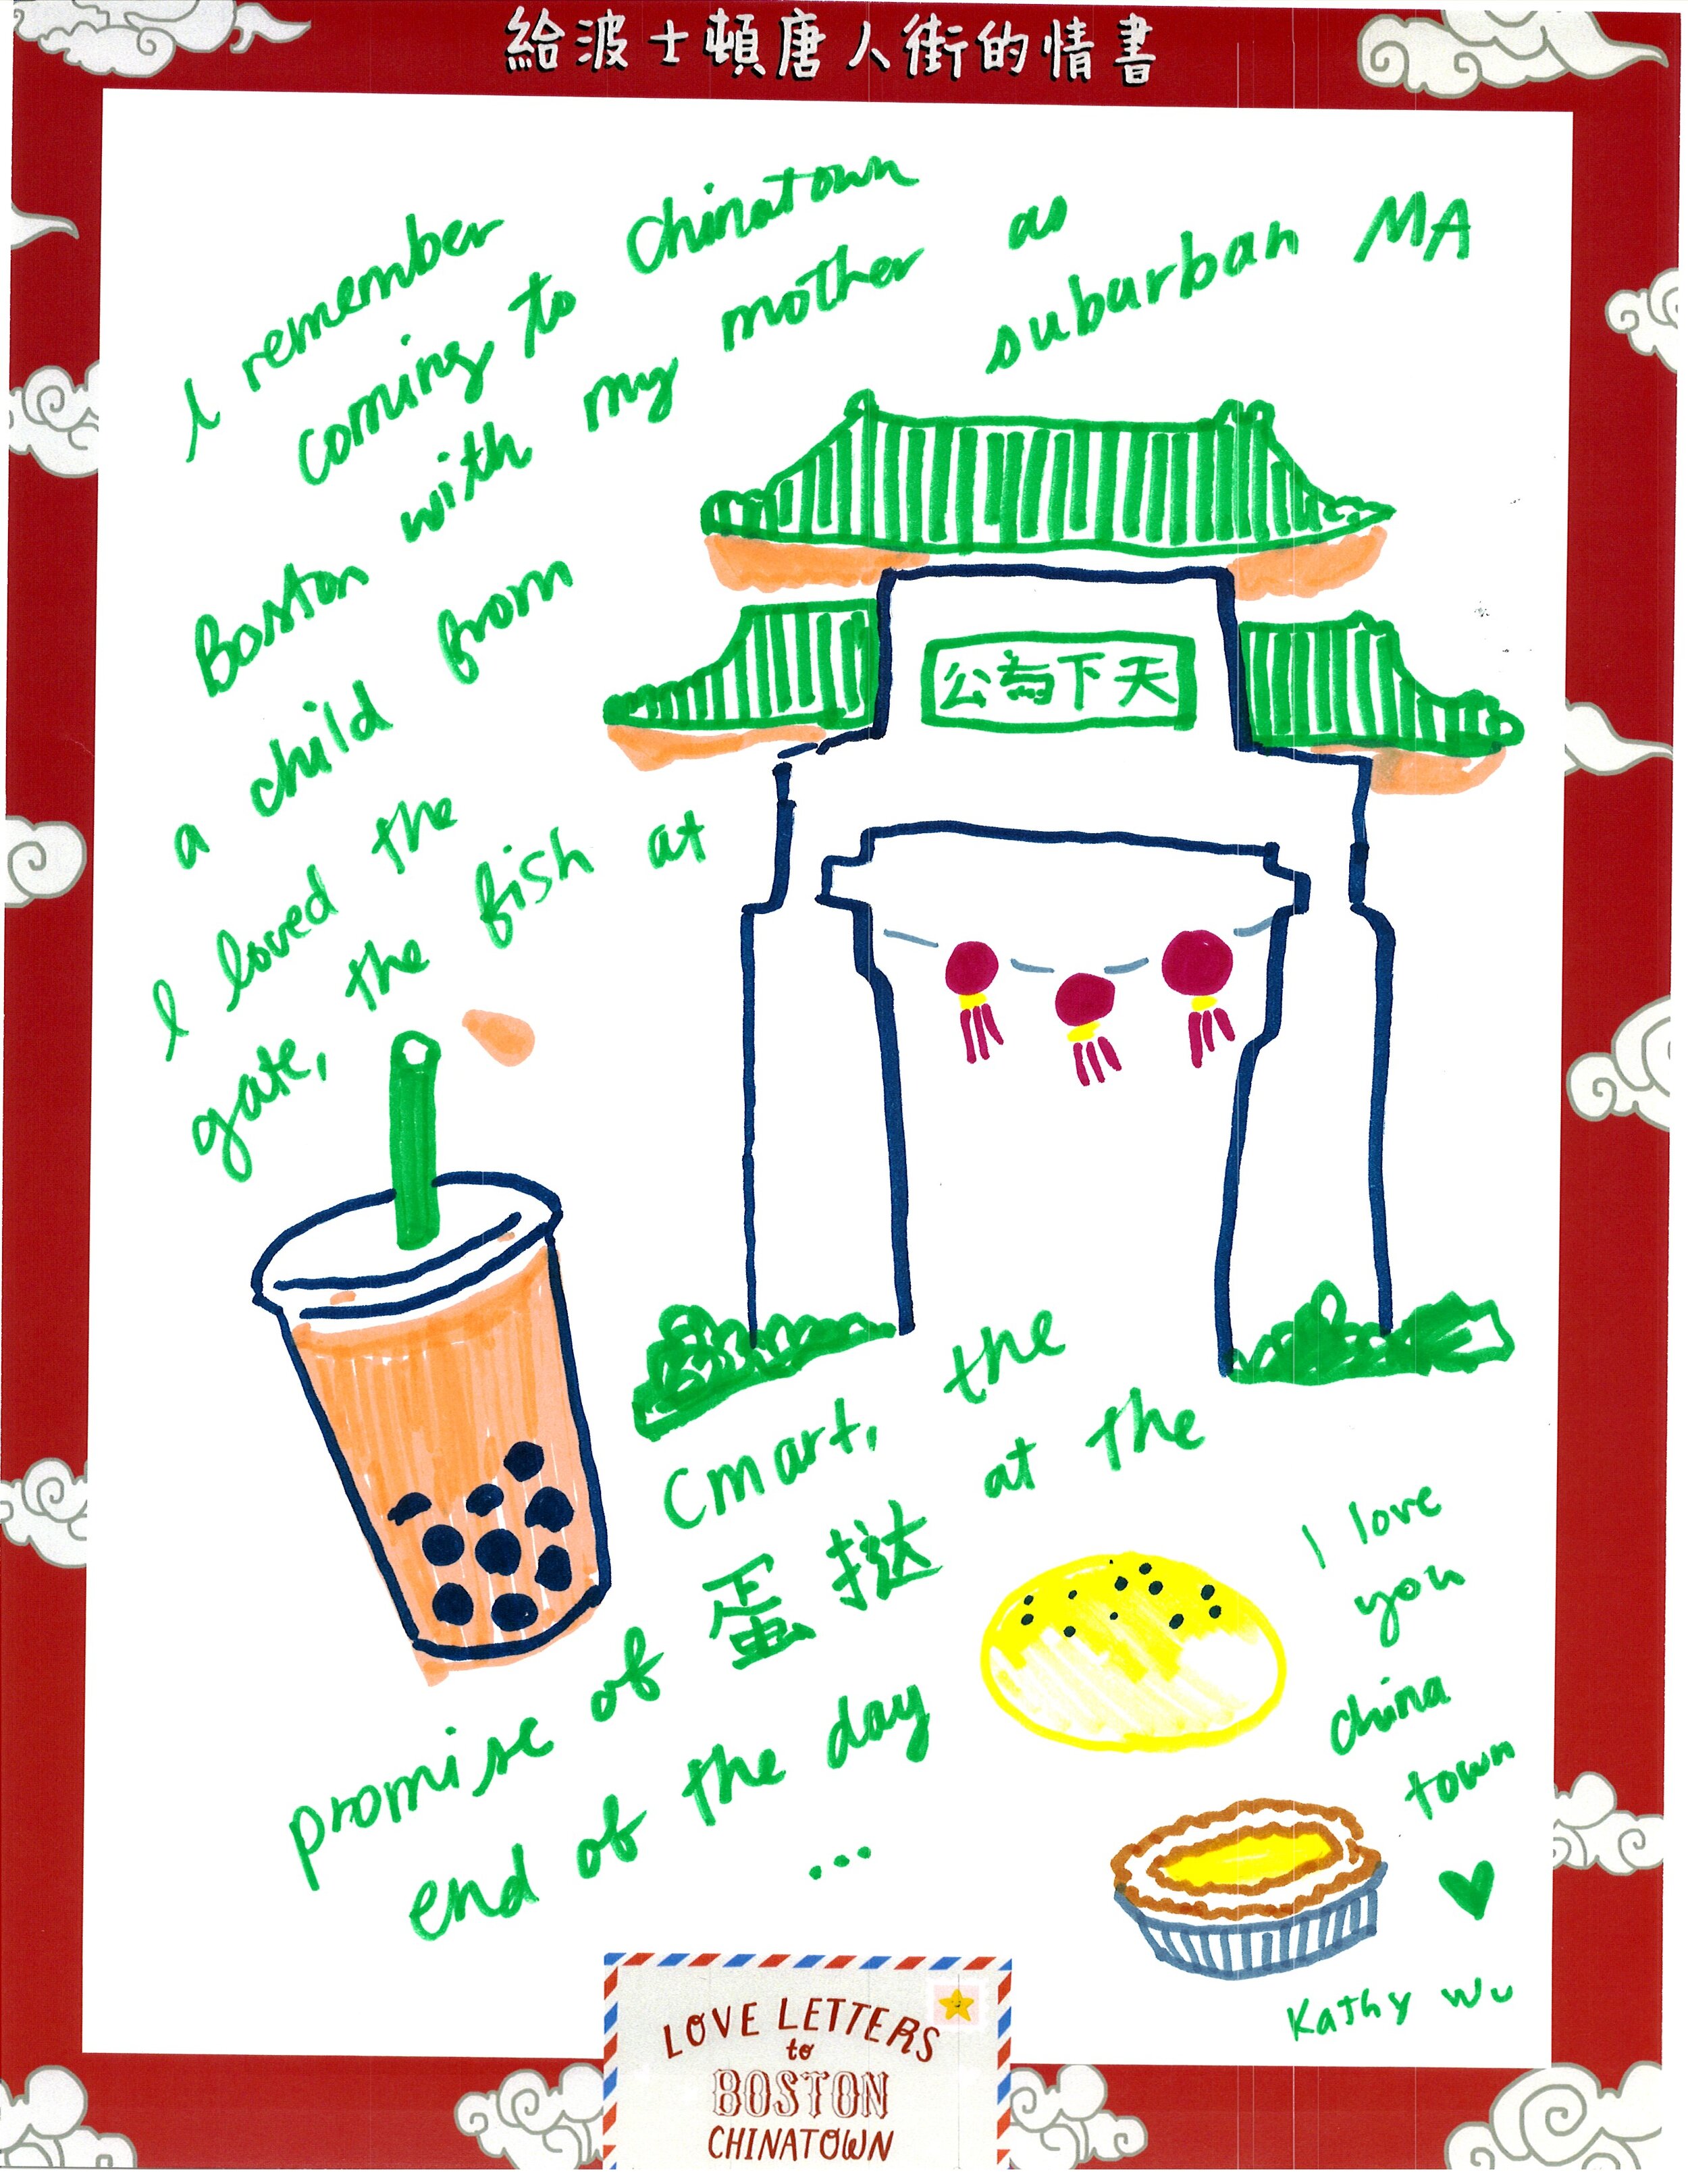 給波士頓唐人街的情書
I remember
coming to Chinatown
Boston with my mother as
a child from suburban MA
天下為公
I loved the
gate, the fish at
Cmart, the
promise of 蛋挞 at the
end of the day
...
I love
you
china
town
♥
Kathy Wu
LOVE LETTERS
to
BOSTON
CHINATOWN